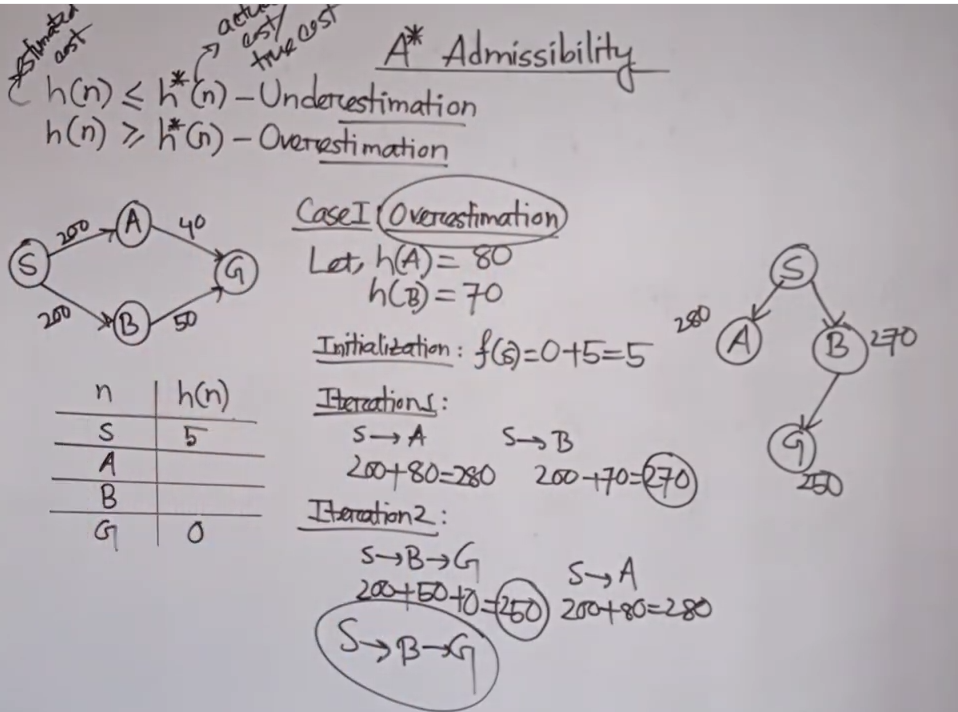 A* Admissibility
estimated cost
actual cost/ true cost
h(n) ≤ h*(n) – Underestimation
h(n) ≥ h*(n) – Overestimation
S
200
A
40
G
200
B
50
n h(n)
S 5
A
B
G 0
Case I Overestimation
Let, h(A) = 80
h(B) = 70
Initialization : f(s) = 0+5=5
Iteration1 :
S→A S→B
200+80=280 200+70=270
Iteration2 :
S→B→G S→A
200+50+0=250 200+80=280
S→B→G
S
280
A
B
270
G
250